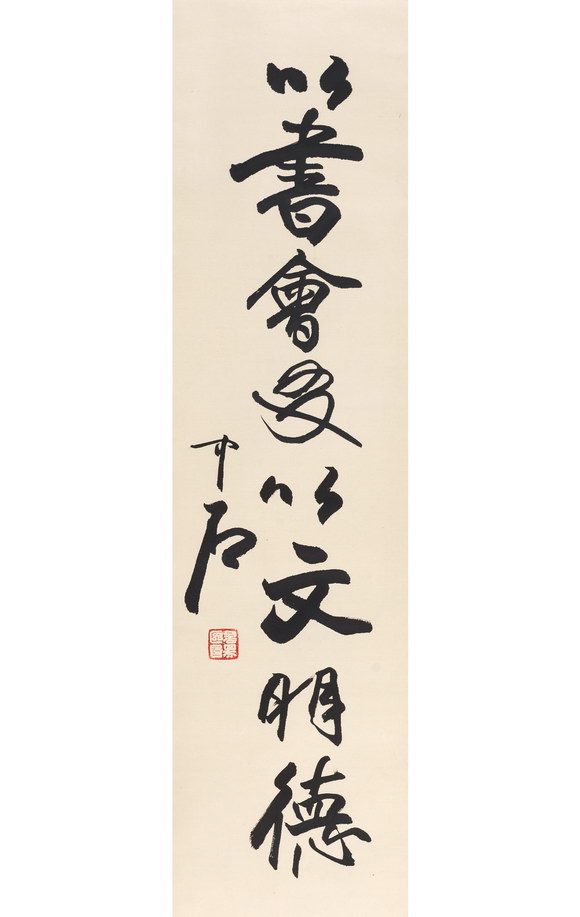 以書會友以文明德
中石